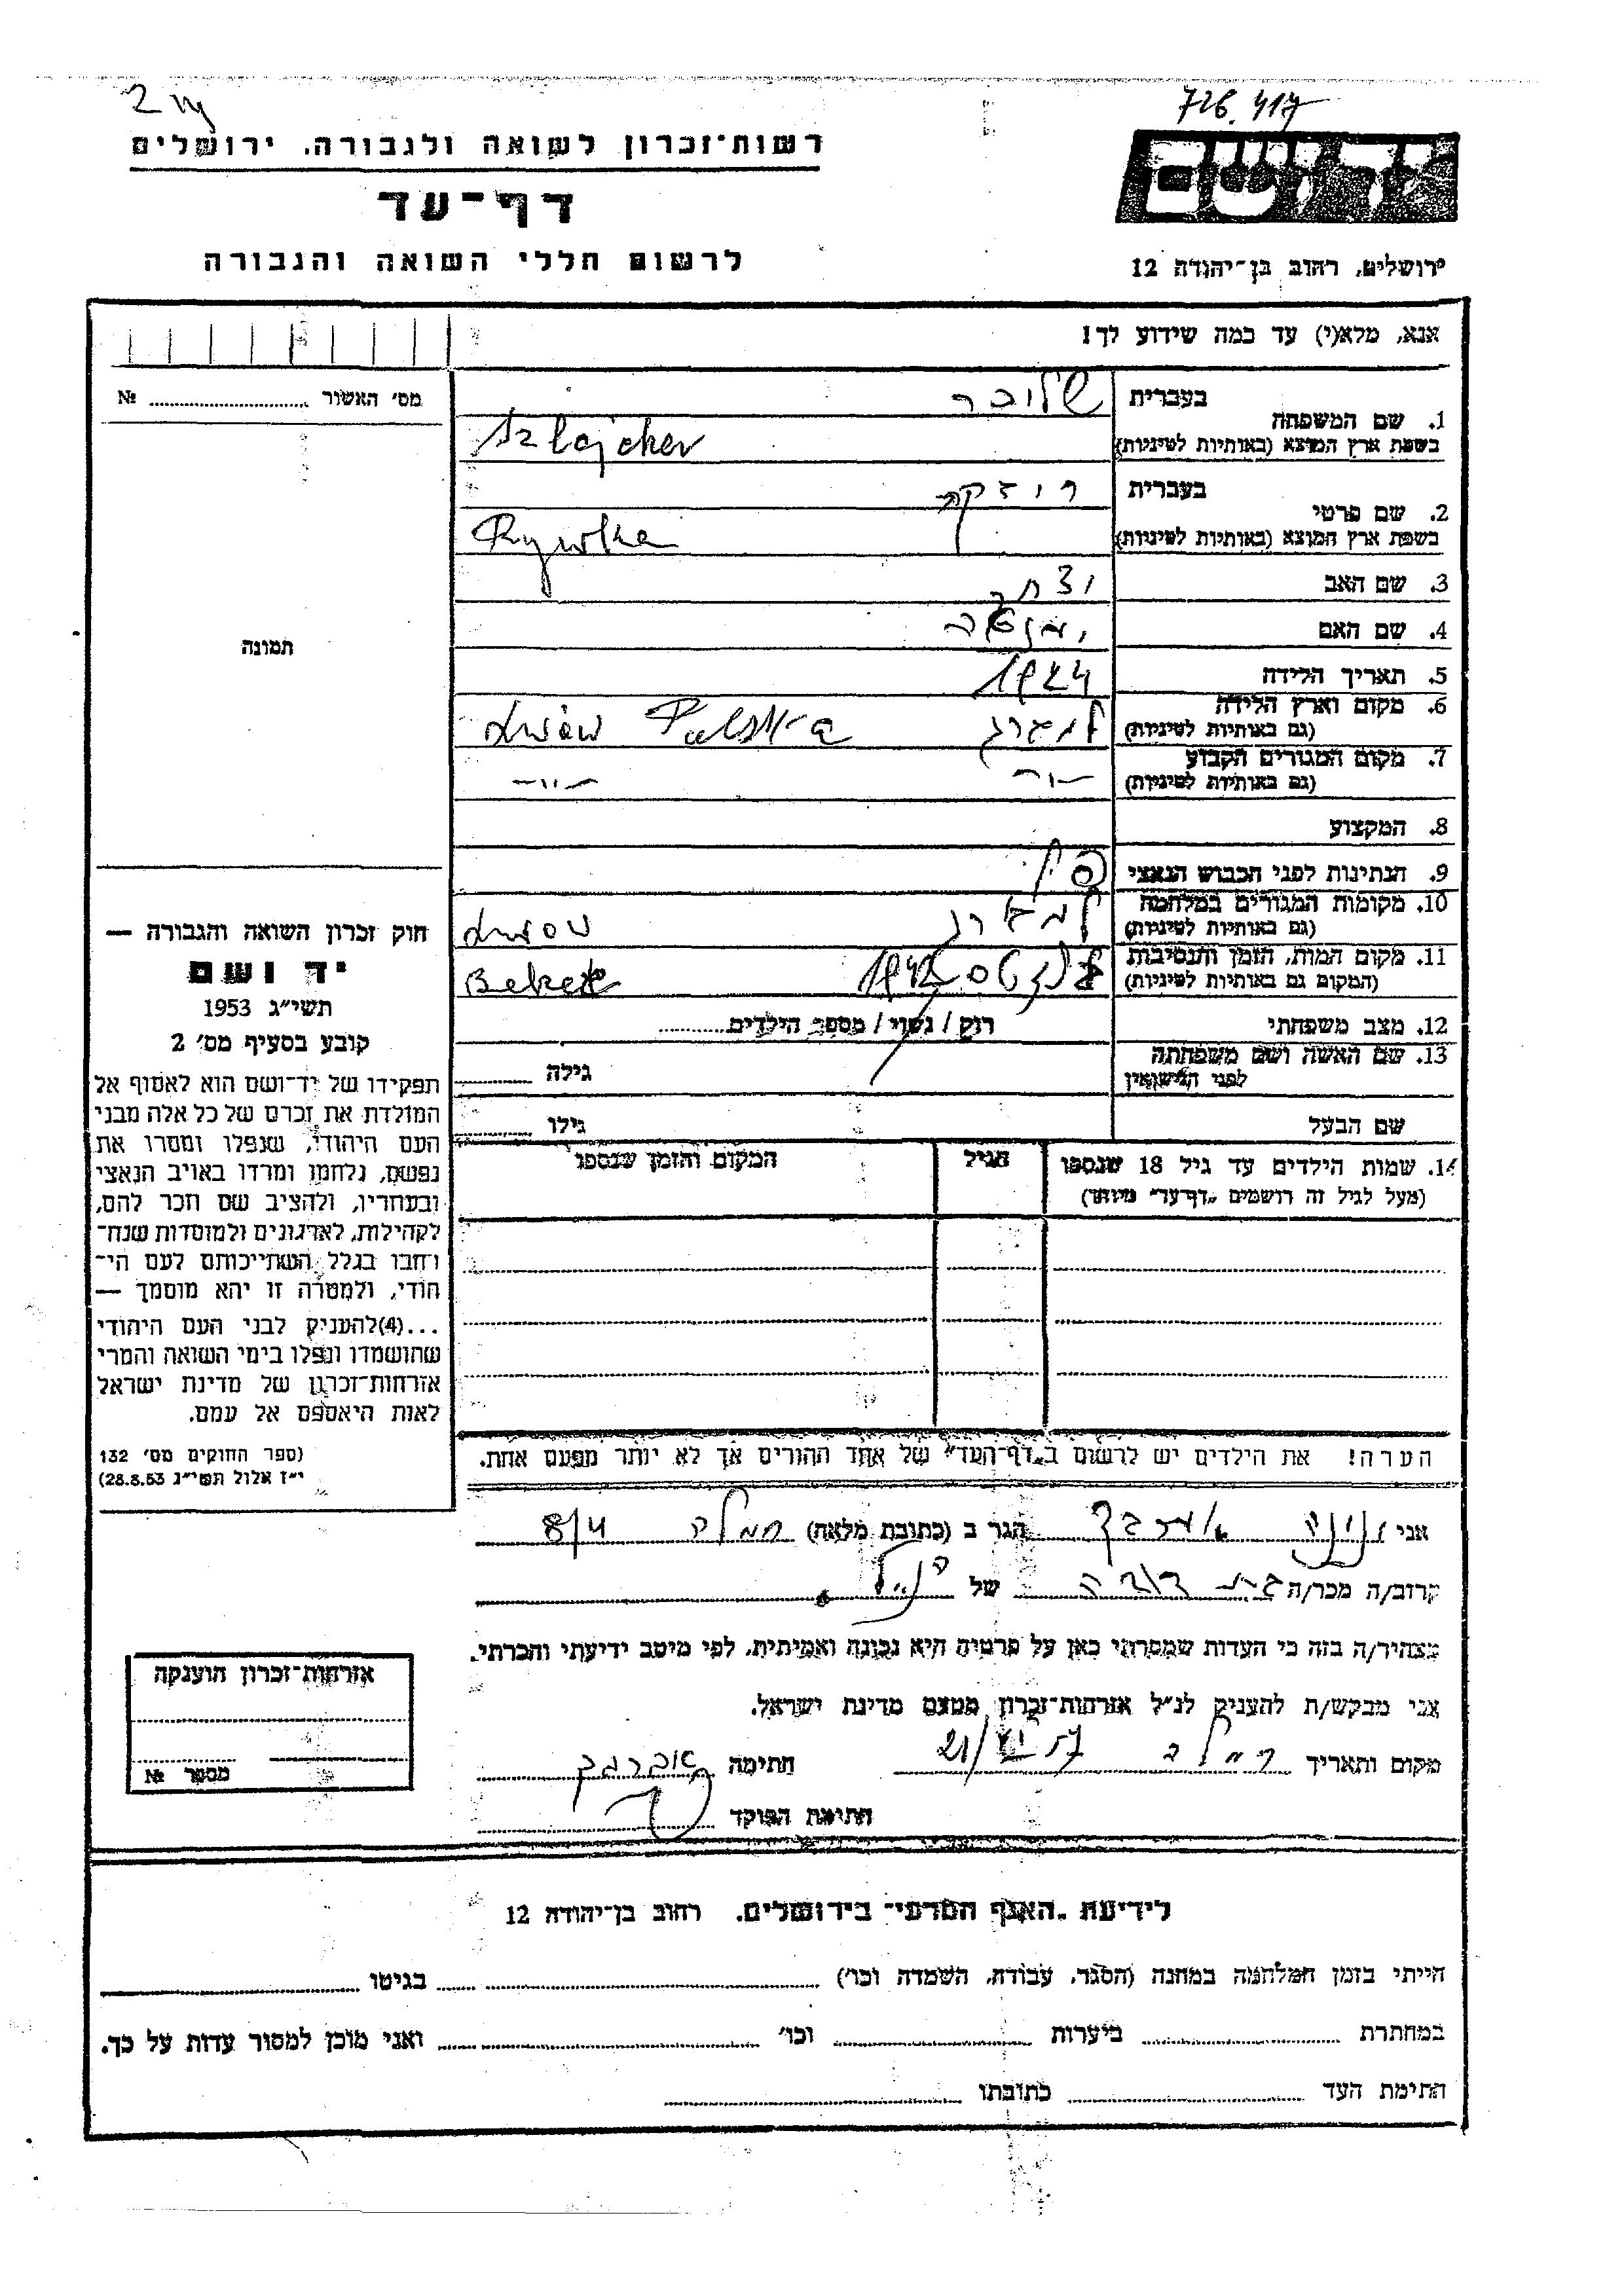 726.417
רשות־זכרון לשואה ולגבורה, ירושלים
יד ושם
דף־עד
לרשום חללי השואה והגבורה
ירושלים, רחוב בן־יהודה 12
אנא, מלא(י) עד כמה שידוע לך!
מס' האשור № 
1. שם המשפחה
בעברית
שלוכר
בשפת ארץ המוצא (באותיות לטיניות)
Szlajcher
2. שם פרטי
בעברית
בשפת ארץ המוצא (באותיות לטיניות)
Rywka
3. שם האב
יצחק
4. שם האם
5. תאריך הלידה 1924
6. מקום וארץ הלידה
(גם באותיות לטיניות)
למברג Lwów Polska
7. מקום המגורים הקבוע
(גם באותיות לטיניות)
-"- -"-
8. המקצוע
9. הנתינות לפני הכבוש הנאצי
10. מקומות המגורים במלחמה
(גם באותיות לטיניות)
למברג Lwow
11. מקום המות, הזמן והנסיבות
(המקום גם באותיות לטיניות)
1942
12. מצב משפחתי
רוק / נשוי / מספר הילדים
13. שם האשה ושם משפחתה
לפני הנישואין
גילה
שם הבעל
גילו
14. שמות הילדים עד גיל 18 שנספו
(מעל לגיל זה רושמים "דף־עד" מיוחד)
הגיל
המקום והזמן שנספו
תמונה
חוק זכרון השואה והגבורה —
יד ושם
תשי"ג 1953
קובע בסעיף מס' 2
תפקידו של יד־ושם הוא לאסוף אל
המולדת את זכרם של כל אלה מבני
העם היהודי, שנפלו ומסרו את
נפשם, נלחמו ומרדו באויב הנאצי
ובעוזריו, ולהציב שם וזכר להם,
לקהילות, לארגונים ולמוסדות שנח־
רבו בגלל השתייכותם לעם הי־
הודי, ולמטרה זו יהא מוסמך —
...(4)להעניק לבני העם היהודי
שהושמדו ונפלו בימי השואה והמרי
אזרחות־זכרון של מדינת ישראל
לאות היאספם אל עמם.
(ספר החוקים מס' 132
י"ז אלול תשי"ג 28.8.53)
הערה! את הילדים יש לרשום ב"דף־העד" של אחד ההורים אך לא יותר מפעם אחת.
אני הגר ב (כתובת מלאה) רמלה 8/4
קרוב/ה מכר/ה בת דודה של
מצהיר/ה בזה כי העדות שמסרתי כאן על פרטיה היא נכונה ואמיתית, לפי מיטב ידיעתי והכרתי.
אני מבקש/ת להעניק לנ"ל אזרחות־זכרון מטעם מדינת ישראל.
מקום ותאריך רמלה חתימה
חתימת הפוקד
אזרחות־זכרון הוענקה
מספר №
לידיעת "האגף המדעי" בירושלים, רחוב בן־יהודה 12
הייתי בזמן המלחמה במחנה (הסגר, עבודה, השמדה וכו') בגיטו
במחתרת ביערות וכו' ואני מוכן למסור עדות על כך.
חתימת העד כתובתו